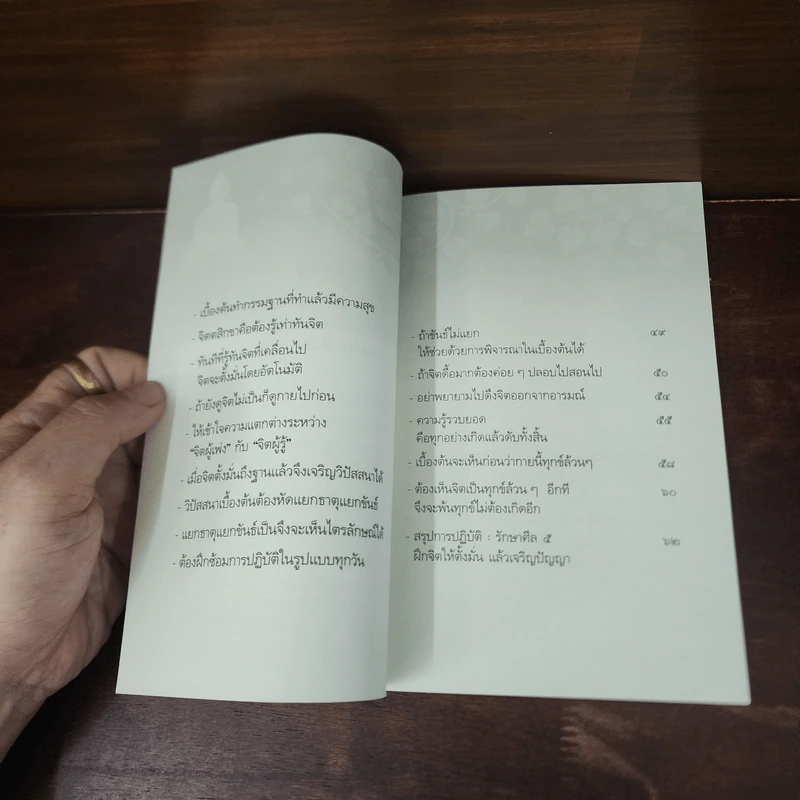 - เบื้องต้นทำกรรมฐานที่ทำแล้วมีความสุข
- จิตตสิกขาคือต้องรู้เท่าทันจิต
- ทันทีที่รู้ทันจิตที่เคลื่อนไป
จิตจะตั้งมั่นโดยอัตโนมัติ
- ถ้ายังดูจิตไม่เป็นก็ดูกายไปก่อน
- ให้เข้าใจความแตกต่างระหว่าง
“จิตผู้เพ่ง” กับ “จิตผู้รู้”
- เมื่อจิตตั้งมั่นถึงฐานแล้วจึงเจริญวิปัสสนาได้
- วิปัสสนาเบื้องต้นต้องหัดแยกธาตุแยกขันธ์
- แยกธาตุแยกขันธ์เป็นจึงจะเห็นไตรลักษณ์ได้
- ต้องฝึกซ้อมการปฏิบัติในรูปแบบทุกวัน
- ถ้าขันธ์ไม่แยก ๔๙
ให้ช่วยด้วยการพิจารณาในเบื้องต้นได้
- ถ้าจิตดื้อมากต้องค่อย ๆ ปลอบไปสอนไป ๕๐
- อย่าพยายามไปดึงจิตออกจากอารมณ์ ๕๔
- ความรู้รวบยอด ๕๕
คือทุกอย่างเกิดแล้วดับทั้งสิ้น
- เบื้องต้นจะเห็นก่อนว่ากายนี้ทุกข์ล้วนๆ ๕๘
- ต้องเห็นจิตเป็นทุกข์ล้วน ๆ อีกที ๖๐
จึงจะพ้นทุกข์ไม่ต้องเกิดอีก
- สรุปการปฏิบัติ : รักษาศีล ๕ ๖๒
ฝึกจิตให้ตั้งมั่น แล้วเจริญปัญญา